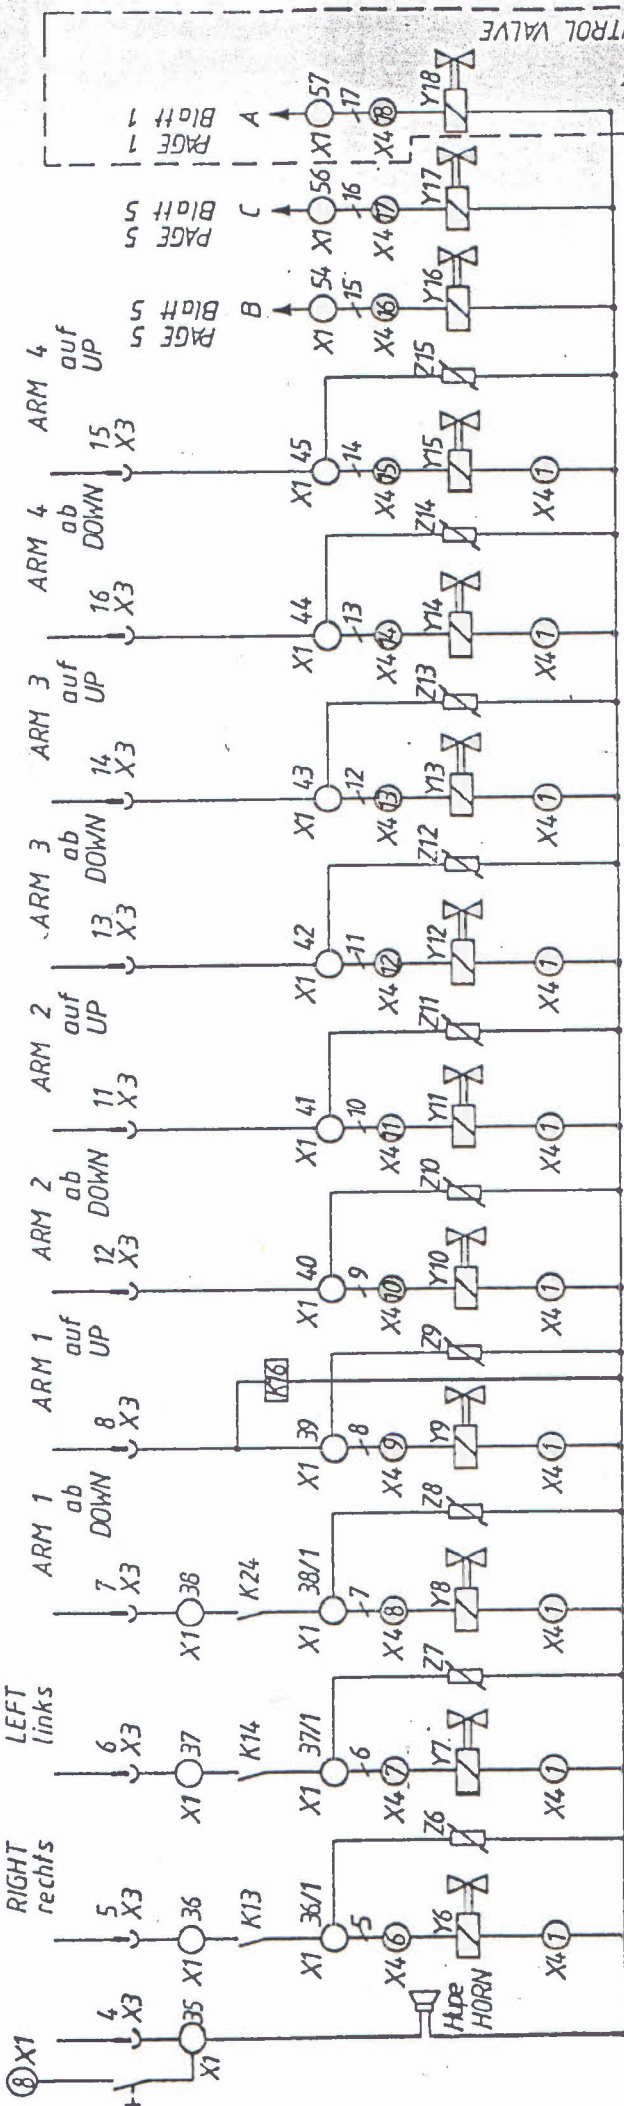 8 X1
4
X3
35
X1
Hupe
HORN
RIGHT
rechts
5
X3
X1 36
K13
X1 36/1
5
X4 6
Y6
Z6
X4 1
LEFT
links
6
X3
X1 37
K14
X1 37/1
6
X4 7
Y7
Z7
X4 1
ARM 1
ab
DOWN
7
X3
X1 38
K24
X1 38/1
7
X4 8
Y8
Z8
X4 1
ARM 1
auf
UP
8
X3
K16
X1 39
8
X4 9
Y9
Z9
X4 1
ARM 2
ab
DOWN
12
X3
X1 40
9
X4 10
Y10
Z10
X4 1
ARM 2
auf
UP
11
X3
X1 41
10
X4 11
Y11
Z11
X4 1
ARM 3
ab
DOWN
13
X3
X1 42
11
X4 12
Y12
Z12
X4 1
ARM 3
auf
UP
14
X3
X1 43
12
X4 13
Y13
Z13
X4 1
ARM 4
ab
DOWN
16
X3
X1 44
13
X4 14
Y14
Z14
X4 1
ARM 4
auf
UP
15
X3
X1 45
14
X4 15
Y15
Z15
X4 1
PAGE 5
Blatt 5
B
X1 54
15
X4 16
Y16
PAGE 5
Blatt 5
C
X1 56
16
X4 17
Y17
PAGE 1
Blatt 1
A
X1 57
17
X4 18
Y18
TROL VALVE